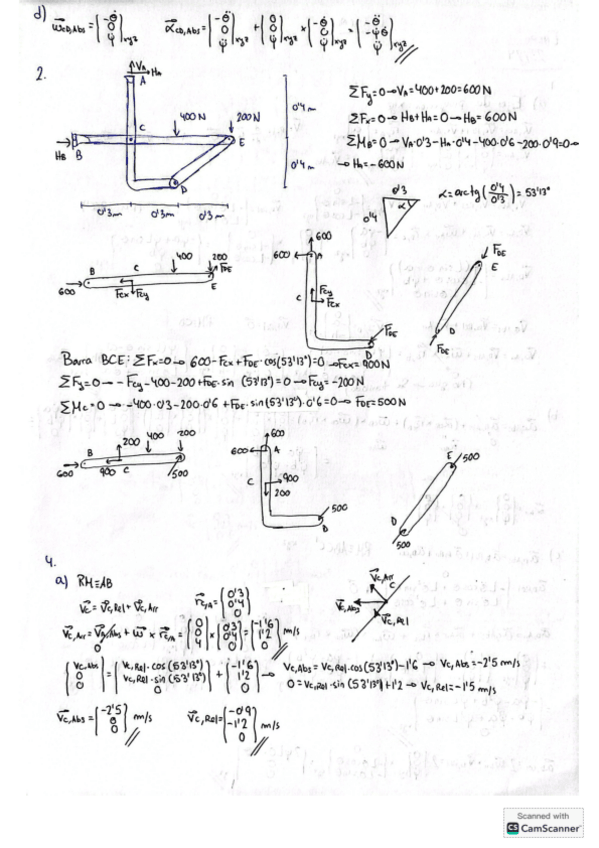 d) ω⃗CD,Abs = (-θ̇ 0 ψ̇)xyz α⃗CD,Abs = (-θ̈ 0 ψ̈)xyz + (0 0 ψ̇)xyz × (-θ̇ 0 ψ̇)xyz = (-θ̈ -ψ̇θ̇ ψ̈)xyz
2.
VA
HA
A
400N
200N
C
E
HB
B
D
0'4 m
0'4 m
0'3m
0'3m
0'3m
ΣFy=0→VA=400+200=600N
ΣFx=0→HB+HA=0→HB=600N
ΣMB=0→VA·0'3-HA·0'4-400·0'6-200·0'9=0→
→HA=-600N
0'3
0'4
α
α=arctg(0'4/0'3)=53'13°
B
C
400
200
FDE
600
FCx
FCy
E
600
600
A
C
FCy
FCx
FDE
D
FDE
E
D
FDE
Barra BCE: ΣFx=0→600-FCx+FDE·cos(53'13°)=0→FCx=900N
ΣFy=0→-FCy-400-200+FDE·sin(53'13°)=0→FCy=-200N
ΣMC=0→-400·0'3-200·0'6+FDE·sin(53'13°)·0'6=0→FDE=500N
B
200
400
200
600
900
C
500
600
600
A
C
900
200
500
D
E
500
D
500
4.
a) RM≡AB
V⃗C=V⃗C,Rel+V⃗C,Arr
r⃗C/A=(0'3 0'4 0)
V⃗C,Arr=V⃗A,Abs+ω⃗×r⃗C/A=(0 0 4)×(0'3 0'4 0)=(-1'6 1'2 0) m/s
0
V⃗C,Arr
C
V⃗C,Abs
V⃗C,Rel
(VC,Abs 0 0)=(VC,Rel·cos(53'13°) VC,Rel·sin(53'13°) 0)+(-1'6 1'2 0)→ VC,Abs=VC,Rel·cos(53'13°)-1'6→VC,Abs=-2'5 m/s
0=VC,Rel·sin(53'13°)+1'2→VC,Rel=-1'5 m/s
V⃗C,Abs=(-2'5 0 0) m/s V⃗C,Rel=(-0'9 -1'2 0) m/s
Scanned with
CS CamScanner